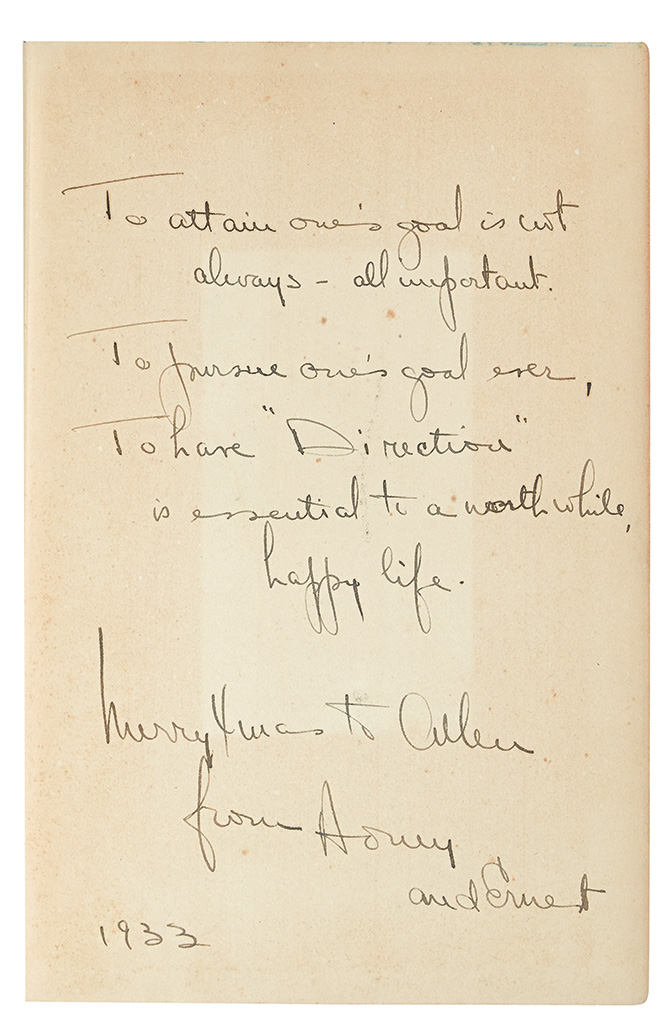 To attain one's goal is not
always - all important.
To pursue one's goal ever,
To have "Direction"
is essential to a worth while,
happy life.
Merry Xmas to Allen
from Honey
and Ernest
1933